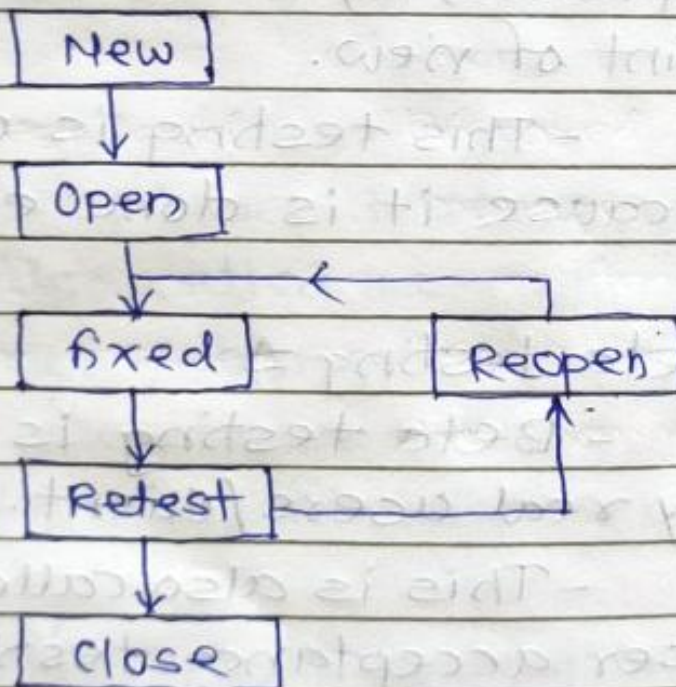 New
Open
fixed
Reopen
Retest
Close